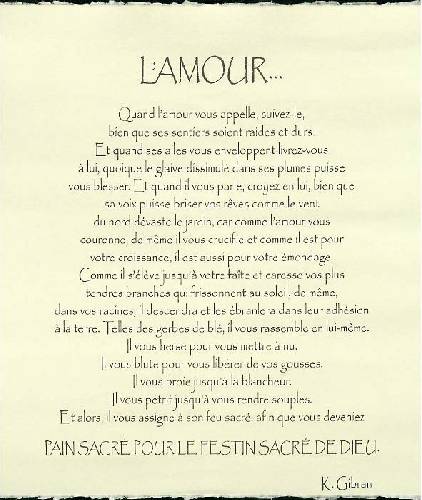 L'AMOUR...
Quand l'amour vous appelle, suivez-le,
bien que ses sentiers soient raides et durs.
Et quand ses ailes vous enveloppent livrez-vous
à lui, quoique le glaive dissimulé dans ses plumes puisse
vous blesser. Et quand il vous parle, croyez en lui, bien que
sa voix puisse briser vos rêves comme le vent
du nord dévaste le jardin, car comme l'amour vous
couronne, de même il vous crucifie et comme il est pour
votre croissance, il est aussi pour votre émondage.
Comme il s'élève jusqu'à votre faîte et caresse vos plus
tendres branches qui frissonnent au soleil, de même,
dans vos racines, il descendra et les ébranlera dans leur adhésion
à la terre. Telles des gerbes de blé, il vous rassemble en lui-même.
Il vous herse pour vous mettre à nu.
Il vous blute pour vous libérer de vos gousses.
Il vous broie jusqu'à la blancheur.
Il vous pétrit jusqu'à vous rendre souples.
Et alors, il vous assigne à son feu sacré, afin que vous deveniez
PAIN SACRÉ POUR LE FESTIN SACRÉ DE DIEU.
K. Gibran